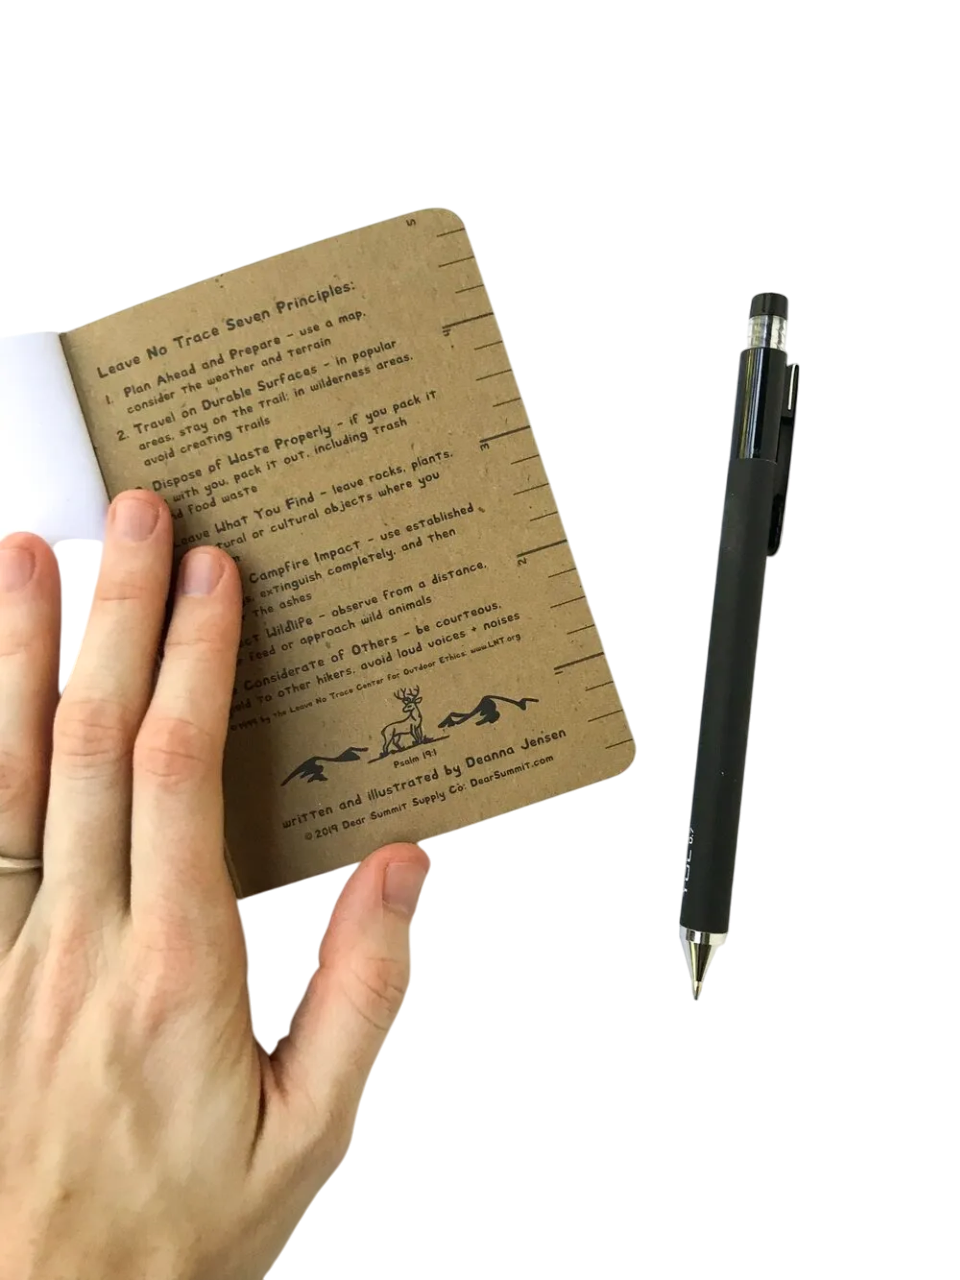 Leave No Trace Seven Principles:
1. Plan Ahead and Prepare - use a map,
consider the weather and terrain
2. Travel on Durable Surfaces - in popular
areas, stay on the trail; in wilderness areas,
avoid creating trails
Dispose of Waste Properly - if you pack it
with you, pack it out, including trash
food waste
What You Find - leave rocks, plants,
or cultural objects where you
Campfire Impact - use established
extinguish completely, and then
the ashes
Wildlife - observe from a distance,
feed or approach wild animals
Considerate of Others - be courteous,
to other hikers, avoid loud voices + noises
by the Leave No Trace Center for Outdoor Ethics: www.LNT.org
Psalm 19:1
written and illustrated by Deanna Jensen
© 2019 Dear Summit Supply Co: DearSummit.com
5
3
2
0.7